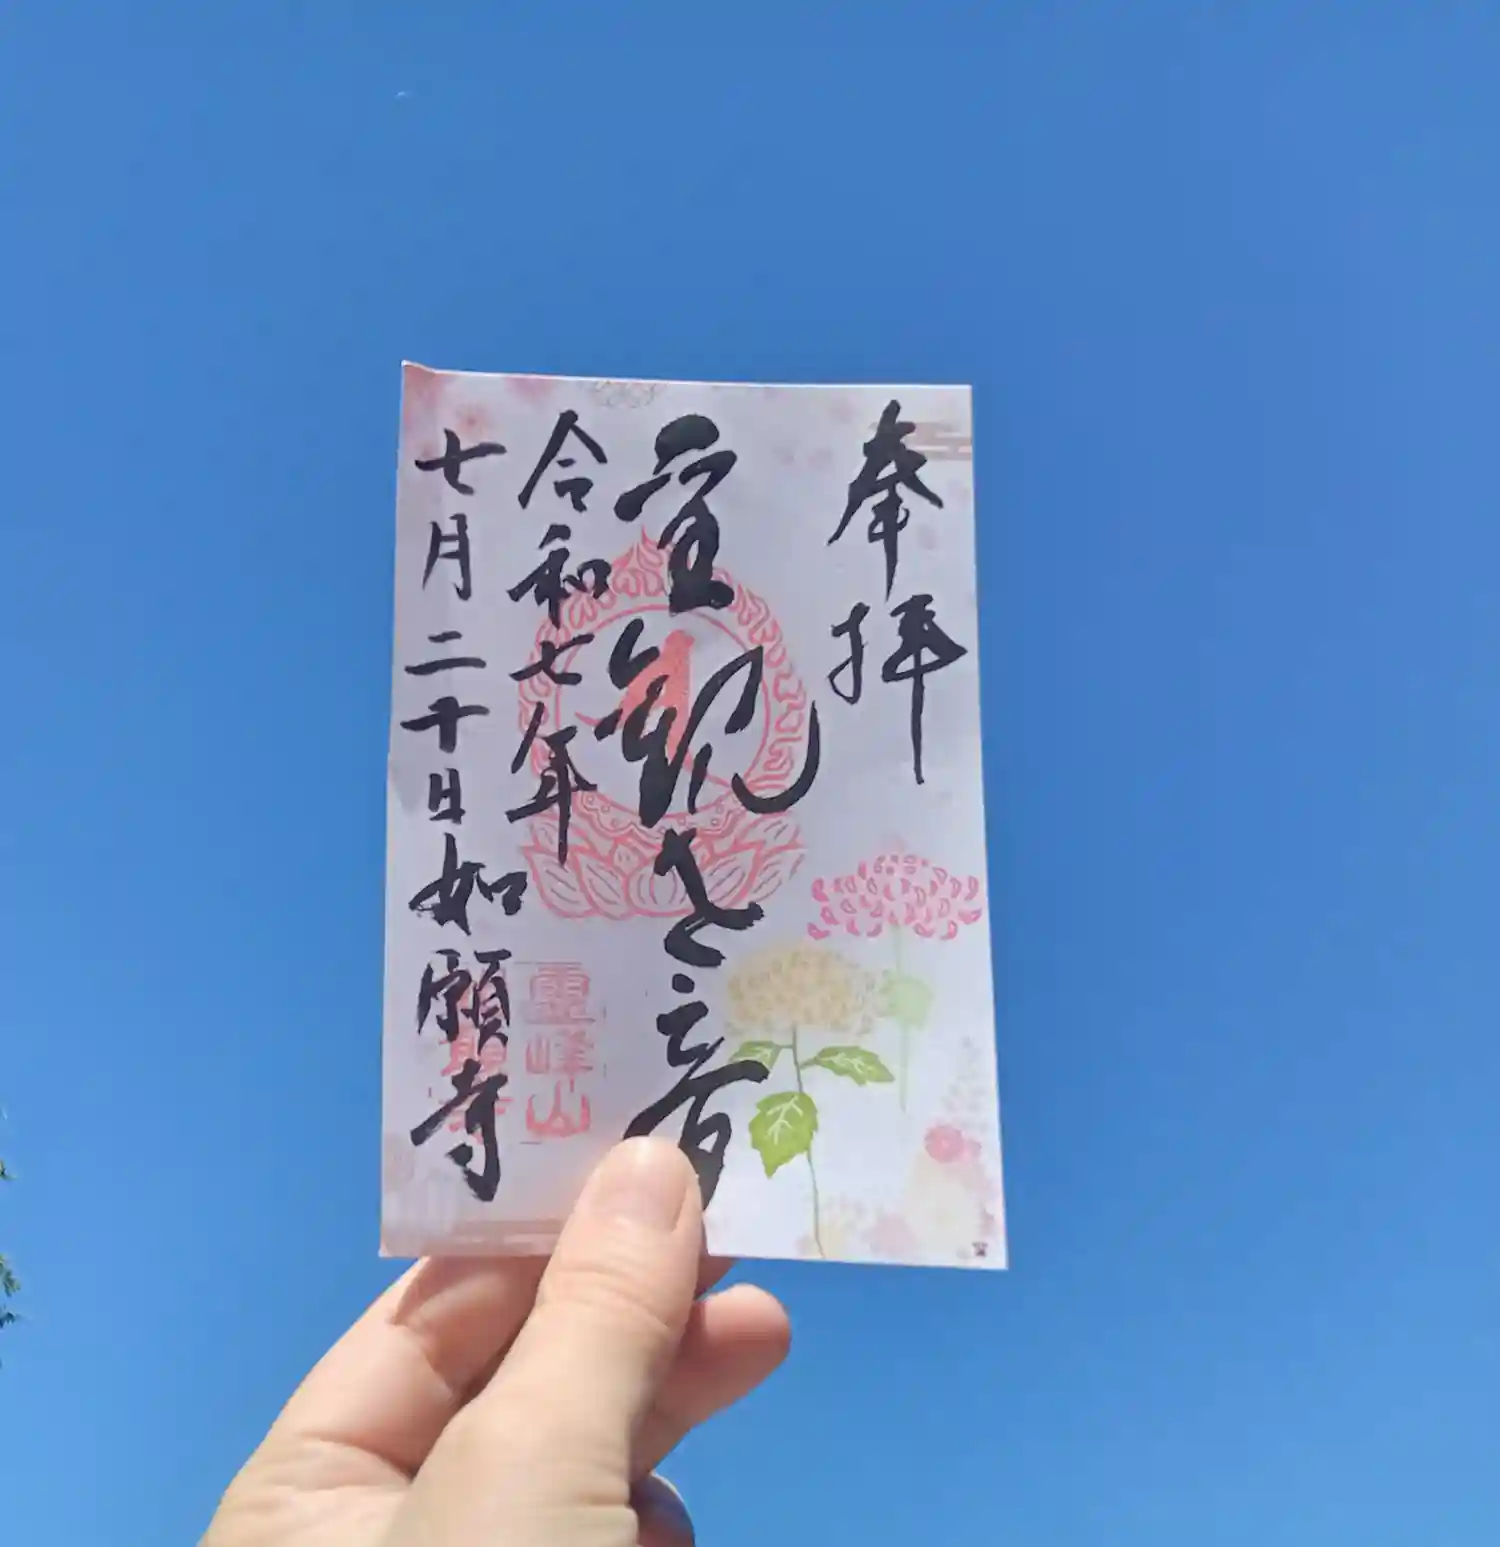 奉拝
聖観世音
令和七年
七月二十日如願寺
靈峰山